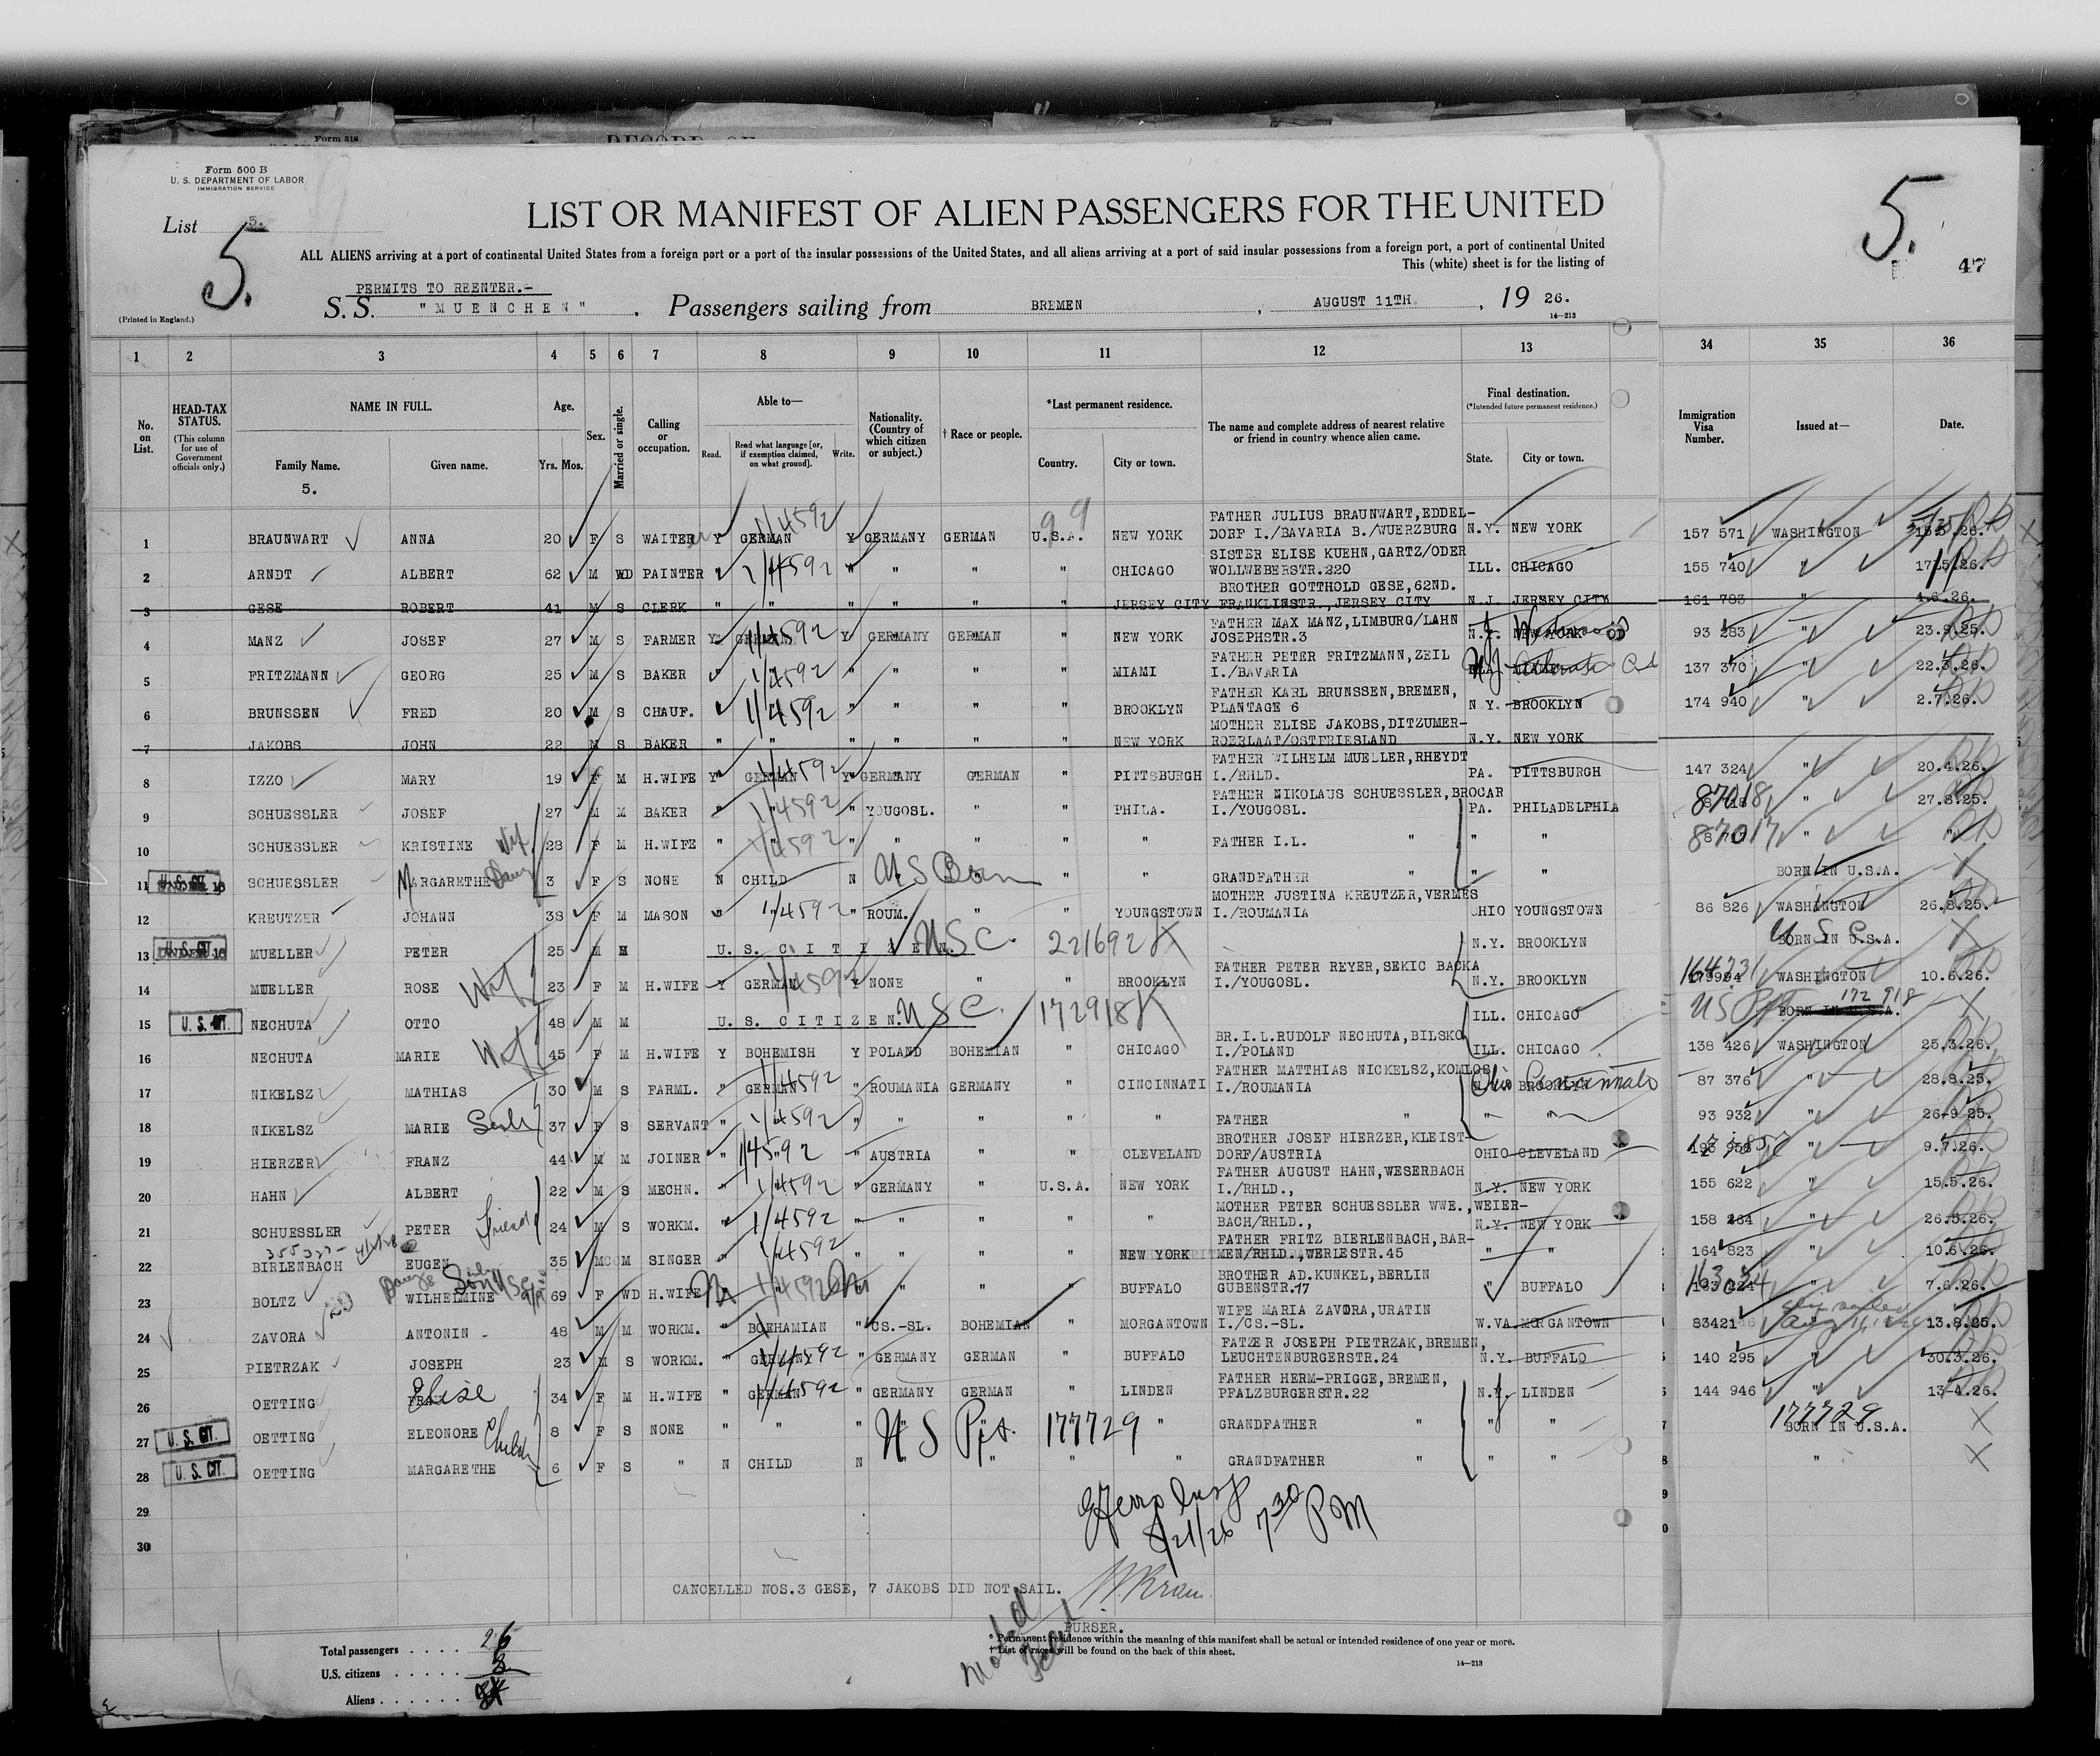 Form 518
RECORD OF
Form 500 B
U. S. DEPARTMENT OF LABOR
IMMIGRATION SERVICE
List 5.
5.
LIST OR MANIFEST OF ALIEN PASSENGERS FOR THE UNITED
5.
47
ALL ALIENS arriving at a port of continental United States from a foreign port or a port of the insular possessions of the United States, and all aliens arriving at a port of said insular possessions from a foreign port, a port of continental United
This (white) sheet is for the listing of
PERMITS TO REENTER.-
S. S. "MUENCHEN". Passengers sailing from BREMEN, AUGUST 11TH, 19 26.
(Printed in England.)
14-213
1 2 3 4 5 6 7 8 9 10 11 12 13 34 35 36
No. on List.
HEAD-TAX STATUS. (This column for use of Government officials only.)
NAME IN FULL.
Family Name. Given name.
5.
Age. Yrs. Mos.
Sex.
Married or single.
Calling or occupation.
Able to— Read. Read what language [or, if exemption claimed, on what ground]. Write.
Nationality. (Country of which citizen or subject.)
† Race or people.
*Last permanent residence. Country. City or town.
The name and complete address of nearest relative or friend in country whence alien came.
Final destination. (*Intended future permanent residence.) State. City or town.
Immigration Visa Number.
Issued at—
Date.
1 BRAUNWART ANNA 20 F S WAITER Y GERMAN 1/4592 Y GERMANY GERMAN U.S.A. NEW YORK FATHER JULIUS BRAUNWART, EDDEL- DORF I./BAVARIA B./WUERZBURG N.Y. NEW YORK 157 571 WASHINGTON
2 ARNDT ALBERT 62 M WD PAINTER " 2/4592 " " " " CHICAGO SISTER ELISE KUEHN, GARTZ/ODER WOLLWEBERSTR.220 ILL. CHICAGO 155 740 " 17.5.26.
3 GESE ROBERT 41 M S CLERK " " " " " " JERSEY CITY BROTHER GOTTHOLD GESE, 62ND. FRANKLINSTR., JERSEY CITY N.J. JERSEY CITY 161 783 " 4.6.26.
4 MANZ JOSEF 27 M S FARMER Y GERMAN 1/4592 Y GERMANY GERMAN " NEW YORK FATHER MAX MANZ, LIMBURG/LAHN JOSEPHSTR.3 NEW YORK 93 283 " 23.9.25.
5 FRITZMANN GEORG 25 M S BAKER " 1/4592 " " " " MIAMI FATHER PETER FRITZMANN, ZEIL I./BAVARIA N.J. 137 370 " 22.3.26.
6 BRUNSSEN FRED 20 M S CHAUF. " 1/4592 " " " " BROOKLYN FATHER KARL BRUNSSEN, BREMEN, PLANTAGE 6 N.Y. BROOKLYN 174 940 " 2.7.26.
7 JAKOBS JOHN 22 M S BAKER " " " " " " NEW YORK MOTHER ELISE JAKOBS, DITZUMER- ROERLAAT/OSTFRIESLAND N.Y. NEW YORK
8 IZZO MARY 19 F M H.WIFE Y GERMAN 1/4592 Y GERMANY GERMAN " PITTSBURGH FATHER WILHELM MUELLER, RHEYDT I./RHLD. PA. PITTSBURGH 147 324 " 20.4.26.
9 SCHUESSLER JOSEF 27 M M BAKER " 1/4592 " YOUGOSL. " " PHILA. FATHER NIKOLAUS SCHUESSLER, BROCAR I./YOUGOSL. PA. PHILADELPHIA 87018 " 27.8.25.
10 SCHUESSLER KRISTINE Wife 28 F M H.WIFE " 1/4592 " " " " " FATHER I.L. " " " 87017 " "
11 U. S. CIT. SCHUESSLER MARGARETHE Daug 3 F S NONE N CHILD N US Born " " GRANDFATHER " " BORN IN U.S.A.
12 KREUTZER JOHANN 38 F M MASON " 1/4592 " ROUM. " " YOUNGSTOWN MOTHER JUSTINA KREUTZER, VERMES I./ROUMANIA OHIO YOUNGSTOWN 86 826 WASHINGTON 26.8.25.
13 U. S. CIT. MUELLER PETER 25 M M U. S. CITIZEN. USC. 221692 K N.Y. BROOKLYN BORN IN U.S.A. U S C
14 MUELLER ROSE Wife 23 F M H.WIFE Y GERMAN 1/4592 Y NONE " " BROOKLYN FATHER PETER REYER, SEKIC BACKA I./YOUGOSL. N.Y. BROOKLYN WASHINGTON 10.6.26.
15 U. S. CIT. NECHUTA OTTO 48 M M U. S. CITIZEN USC. 172918 K ILL. CHICAGO US PPT. 172 918 BORN IN U.S.A.
16 NECHUTA MARIE Wife 45 F M H.WIFE Y BOHEMISH Y POLAND BOHEMIAN " CHICAGO BR.I.L.RUDOLF NECHUTA, BILSKO I./POLAND ILL. CHICAGO 138 426 WASHINGTON 25.3.26.
17 NIKELSZ MATHIAS 30 M S FARML. " GERMAN 1/4592 " ROUMANIA GERMANY " CINCINNATI FATHER MATTHIAS NICKELSZ, KOMLOS I./ROUMANIA Ohio Cincinnati BROOKLYN 87 376 " 28.8.25.
18 NIKELSZ MARIE 37 F S SERVANT " 1/4592 " " " " " FATHER " " " 93 932 " 26-9.25.
19 HIERZER FRANZ 44 M M JOINER " 1/4592 " AUSTRIA " " CLEVELAND BROTHER JOSEF HIERZER, KLEIST- DORF/AUSTRIA OHIO CLEVELAND " 9.7.26.
20 HAHN ALBERT 22 M S MECHN. " 1/4592 " GERMANY " U.S.A. NEW YORK FATHER AUGUST HAHN, WESERBACH I./RHLD., N.Y. NEW YORK 155 622 " 15.5.26.
21 SCHUESSLER PETER friend 24 M S WORKM. " 1/4592 " " " " " MOTHER PETER SCHUESSLER WWE., WEIER- BACH/RHLD., N.Y. NEW YORK 158 264 " 26.5.26.
22 BIRLENBACH EUGEN 35 M M SINGER " 1/4592 " " " " NEW YORK FATHER FRITZ BIERLENBACH, BAR- MEN/RHLD., WERLESTR.45 " " 164 823 " 10.6.26.
23 BOLTZ WILHELMINE 69 F WD H.WIFE 1/4592 " " " BUFFALO BROTHER AD.KUNKEL, BERLIN GUBENSTR.17 " BUFFALO " 7.6.26.
24 ZAVORA ANTONIN 48 M M WORKM. " BOEHAMIAN " CS.-SL. BOHEMIAN " MORGANTOWN WIFE MARIA ZAVORA, URATIN I./CS.-SL. W.VA. MORGANTOWN 83421 13.8.25.
25 PIETRZAK JOSEPH 23 M S WORKM. " GERMAN 1/4592 " GERMANY GERMAN " BUFFALO FATZER JOSEPH PIETRZAK, BREMEN, LEUCHTENBURGERSTR.24 N.Y. BUFFALO 140 295 " 30.3.26.
26 OETTING Elise 34 F M H.WIFE " GERMAN 1/4592 " GERMANY GERMAN " LINDEN FATHER HERM-PRIGGE, BREMEN, PFALZBURGERSTR.22 N.J. LINDEN 144 946 " 13-4.26.
27 U. S. CIT. OETTING ELEONORE 8 F S NONE " " " US Ppt. 177729 " GRANDFATHER " " " 177729 BORN IN U.S.A.
28 U. S. CIT. OETTING MARGARETHE 6 F S " N CHILD N " " " GRANDFATHER " " " "
29
30
8/21/26 7 30 PM
CANCELLED NOS.3 GESE, 7 JAKOBS DID NOT SAIL.
PURSER.
Total passengers . . . . 26
U.S. citizens . . . . .
Aliens . . . . . .
* Permanent residence within the meaning of this manifest shall be actual or intended residence of one year or more.
† List of races will be found on the back of this sheet.
14-213